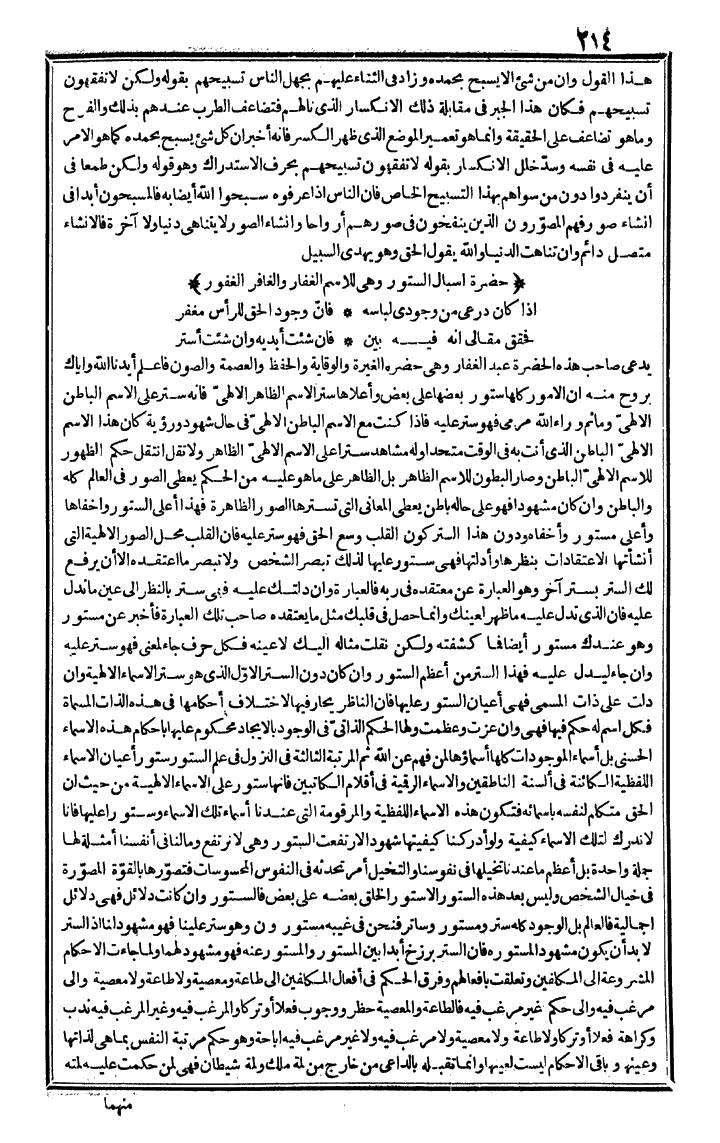 ٢١٤
هذا القول وان من شئ الا يسبح بحمده وزاد فى الثناء عليهم بجهل الناس تسبيحهم بقوله ولكن لا تفقهون
تسبيحهم فكان هذا الجبر فى مقابلة ذلك الانكسار الذى نالهم فتضاعف الطرب عندهم بذلك والفرح
وما هو تضاعف على الحقيقة وانما هو تعمير الموضع الذى ظهر الكسر فانه أخبر ان كل شئ يسبح بحمده كما هو الامر
عليه فى نفسه وسدّ خلل الانكسار بقوله لا تفقهون تسبيحهم بحرف الاستدراك وهو قوله ولكن طمعا فى
أن ينفردوا دون من سواهم بهذا التسبيح الخاص فان الناس اذا عرفوه سبحوا الله أيضا به فالمسبحون أبدا فى
انشاء صور فهم المصوّرون الذين ينفخون فى صورهم أرواحا وانشاء الصور لا يتناهى دنيا ولا آخرة فالانشاء
متصل دائم وان تناهت الدنيا والله يقول الحق وهو يهدى السبيل
﴿ حضرة اسبال الستور وهى للاسم الغفار والغافر الغفور ﴾
اذا كان درعى من وجودى لباسه * فانّ وجود الحق للرأس مغفر
فحقق مقالى انه فيه بين * فان شئت أبديه وان شئت أستر
يدعى صاحب هذه الحضرة عبد الغفار وهى حضرة الغيرة والوقاية والحفظ والعصمة والصون فاعلم أيدنا الله واياك
بروح منه ان الامور كلها ستور بعضها على بعض وأعلاها ستر الاسم الظاهر الالهىّ فانه ستر على الاسم الباطن
الالهىّ وما ثم وراء الله مرمى فهو ستر عليه فاذا كنت مع الاسم الباطن الالهىّ فى حال شهود ورؤية كان هذا الاسم
الالهىّ الباطن الذى أنت به فى الوقت متحد وله مشاهد سترا على الاسم الالهىّ الظاهر ولا تقل انتقل حكم الظهور
للاسم الالهىّ الباطن وصار البطون للاسم الظاهر بل الظاهر على ما هو عليه من الحكم يعطى الصور فى العالم كله
والباطن وان كان مشهودا فهو على حاله باطن يعطى المعانى التى تسترها الصور الظاهرة فهذا أعلى الستور واخفاها
وأعلى مستور وأخفاه ودون هذا الستر كون القلب وسع الحق فهو ستر عليه فان القلب محل الصور الالهية التى
أنشأتها الاعتقادات بنظرها وأدلتها فهى ستور عليها لذلك تبصر الشخص ولا تبصر ما اعتقده الا أن يرفع
لك الستر بستر آخر وهو العبارة عن معتقده فى ربه فالعبارة وان دلتك عليه فهى ستر بالنظر الى عين ما تدل
عليه فان الذى تدل عليه ما ظهر لعينك وانما حصل فى قلبك مثل ما يعتقده صاحب تلك العبارة فأخبر عن مستور
وهو عندك مستور أيضا فما كشفته ولكن نقلت مثاله اليك لا عينه فكل حرف جاء لمعنى فهو ستر عليه
وان جاء ليدل عليه فهذا الستر من أعظم الستور وان كان دون الستر الاوّل الذى هو ستر الاسماء الالهية وان
دلت على ذات المسمى فهى أعيان الستور عليها فان الناظر يحار فيها لاختلاف أحكامها فى هذه الذات المسماة
فكل اسم له حكم فيها فهى وان عزت وعظمت ولها الحكم الذاتىّ فى الوجود بالايجاد محكوم عليها باحكام هذه الاسماء
الحسنى بل أسماء الموجودات كلها أسماؤها لمن فهم عن الله ثم المرتبة الثالثة فى النزول فى علم الستور ستور أعيان الاسماء
اللفظية الكائنة فى ألسنة الناطقين والاسماء الرقية فى أقلام الكاتبين فانها ستور على الاسماء الالهية من حيث ان
الحق متكلم لنفسه باسمائه فتكون هذه الاسماء اللفظية والمرقومة التى عندنا أسماء تلك الاسماء وستورا عليها فانا
لا ندرك لتلك الاسماء كيفية ولو أدركنا كيفيتها شهودا لارتفعت الستور وهى لا ترتفع وما لنا فى أنفسنا أمثلة لها
جملة واحدة بل أعظم ما عندنا تخيلها فى نفوسنا والتخيل أمر تحدثه فى النفوس المحسوسات فتصوّرها بالقوّة المصوّرة
فى خيال الشخص وليس بعد هذه الستور الا ستور الخلق بعضه على بعض فالستور وان كانت دلائل فهى دلائل
اجمالية فالعالم بل الوجود كله ستر ومستور وساتر فنحن فى غيبه مستورون وهو ستر علينا فهو مشهود لنا اذ الستر
لا بد أن يكون مشهود المستوره فان الستر برزخ أبدا بين المستور والمستور عنه فهو مشهود لهما ولما جاءت الاحكام
المشروعة الى المكلفين وتعلقت بافعالهم وفرق الحكم فى أفعال المكلفين الى طاعة ومعصية ولا طاعة ولا معصية والى
مرغب فيه والى حكم غير مرغب فيه فالطاعة والمعصية حظر ووجوب فعلا أو تركا والمرغب فيه وغير المرغب فيه ندب
وكراهة فعلا أو تركا ولا طاعة ولا معصية ولا مرغب فيه ولا غير مرغب فيه اباحة وهو حكم مرتبة النفس بما هى لذاتها
وعينها وباقى الاحكام ليست لعينها وانما تقبله بالداعى من خارج من لمة ملك ولمة شيطان فهى لمن حكمت عليه لمته
منهما